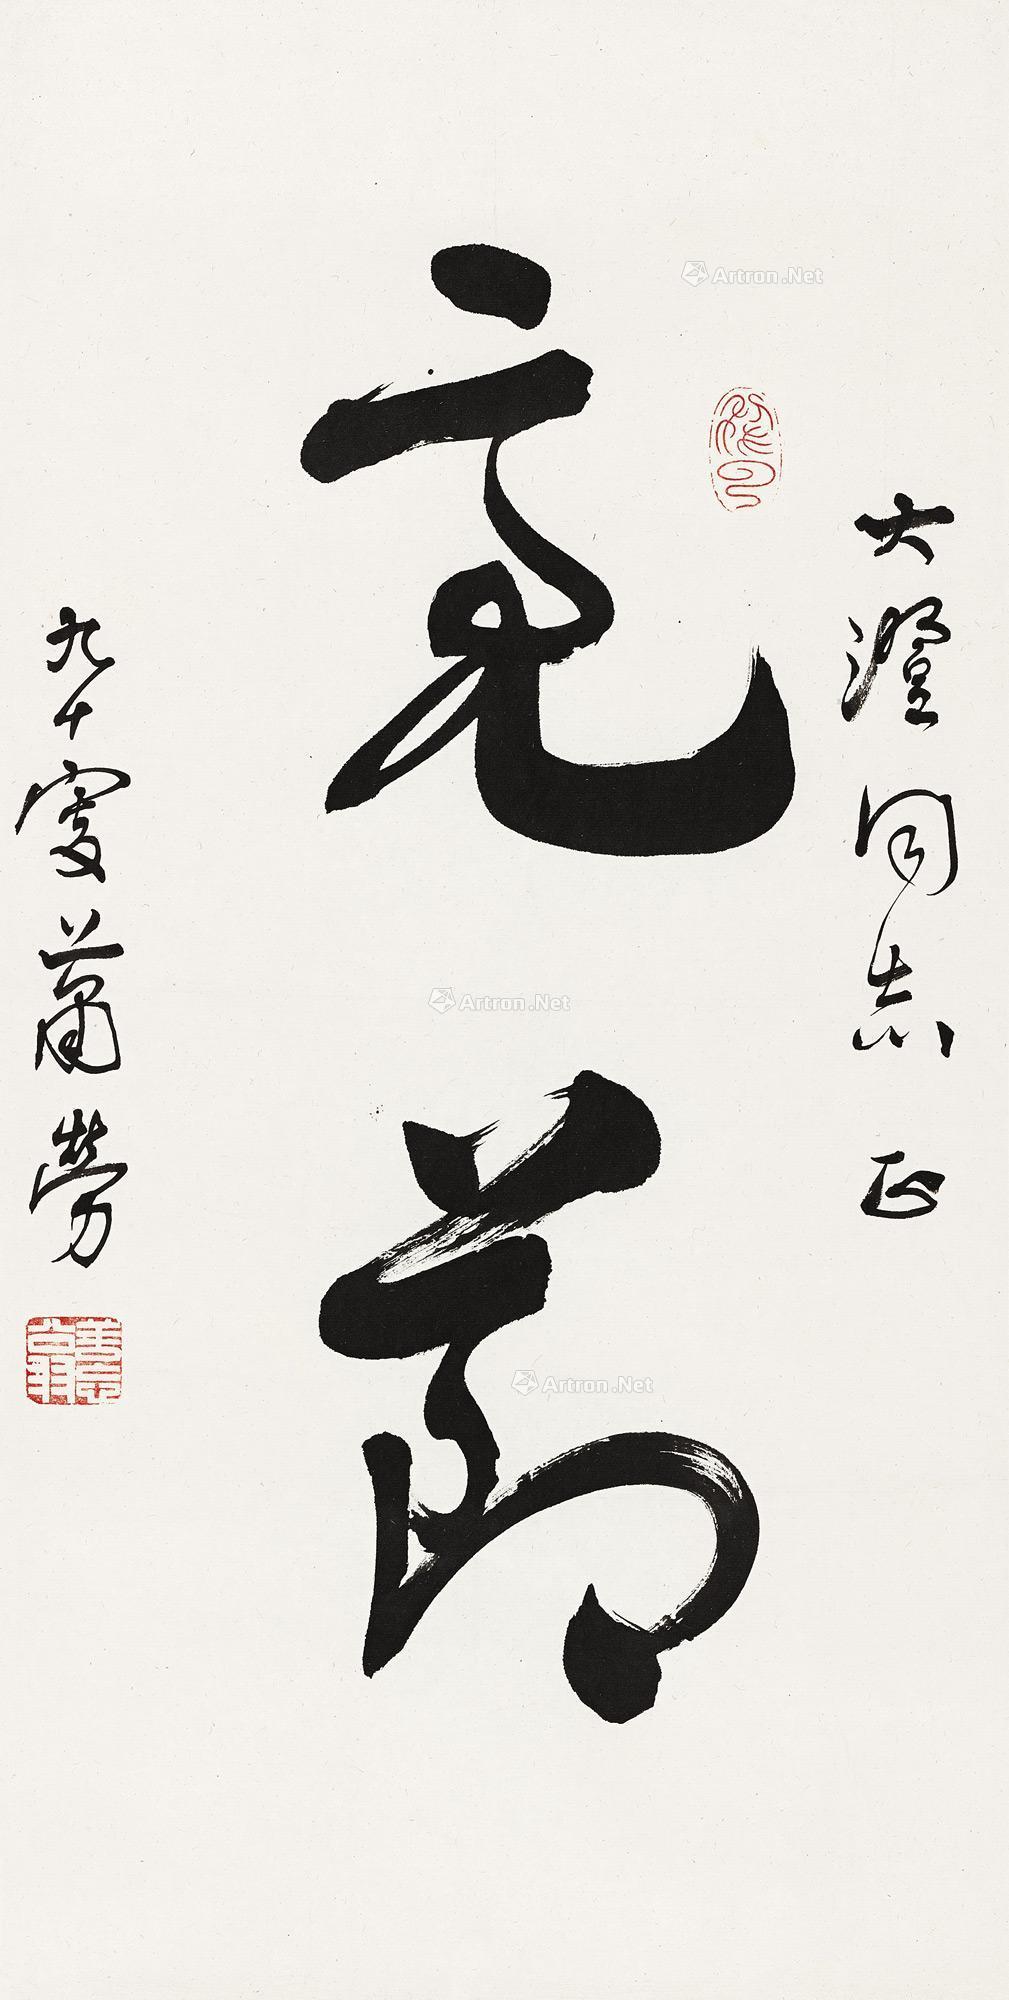 大澄同志正
亮節
九十叟蕭勞
Artron.Net
Artron.Net
Artron.Net